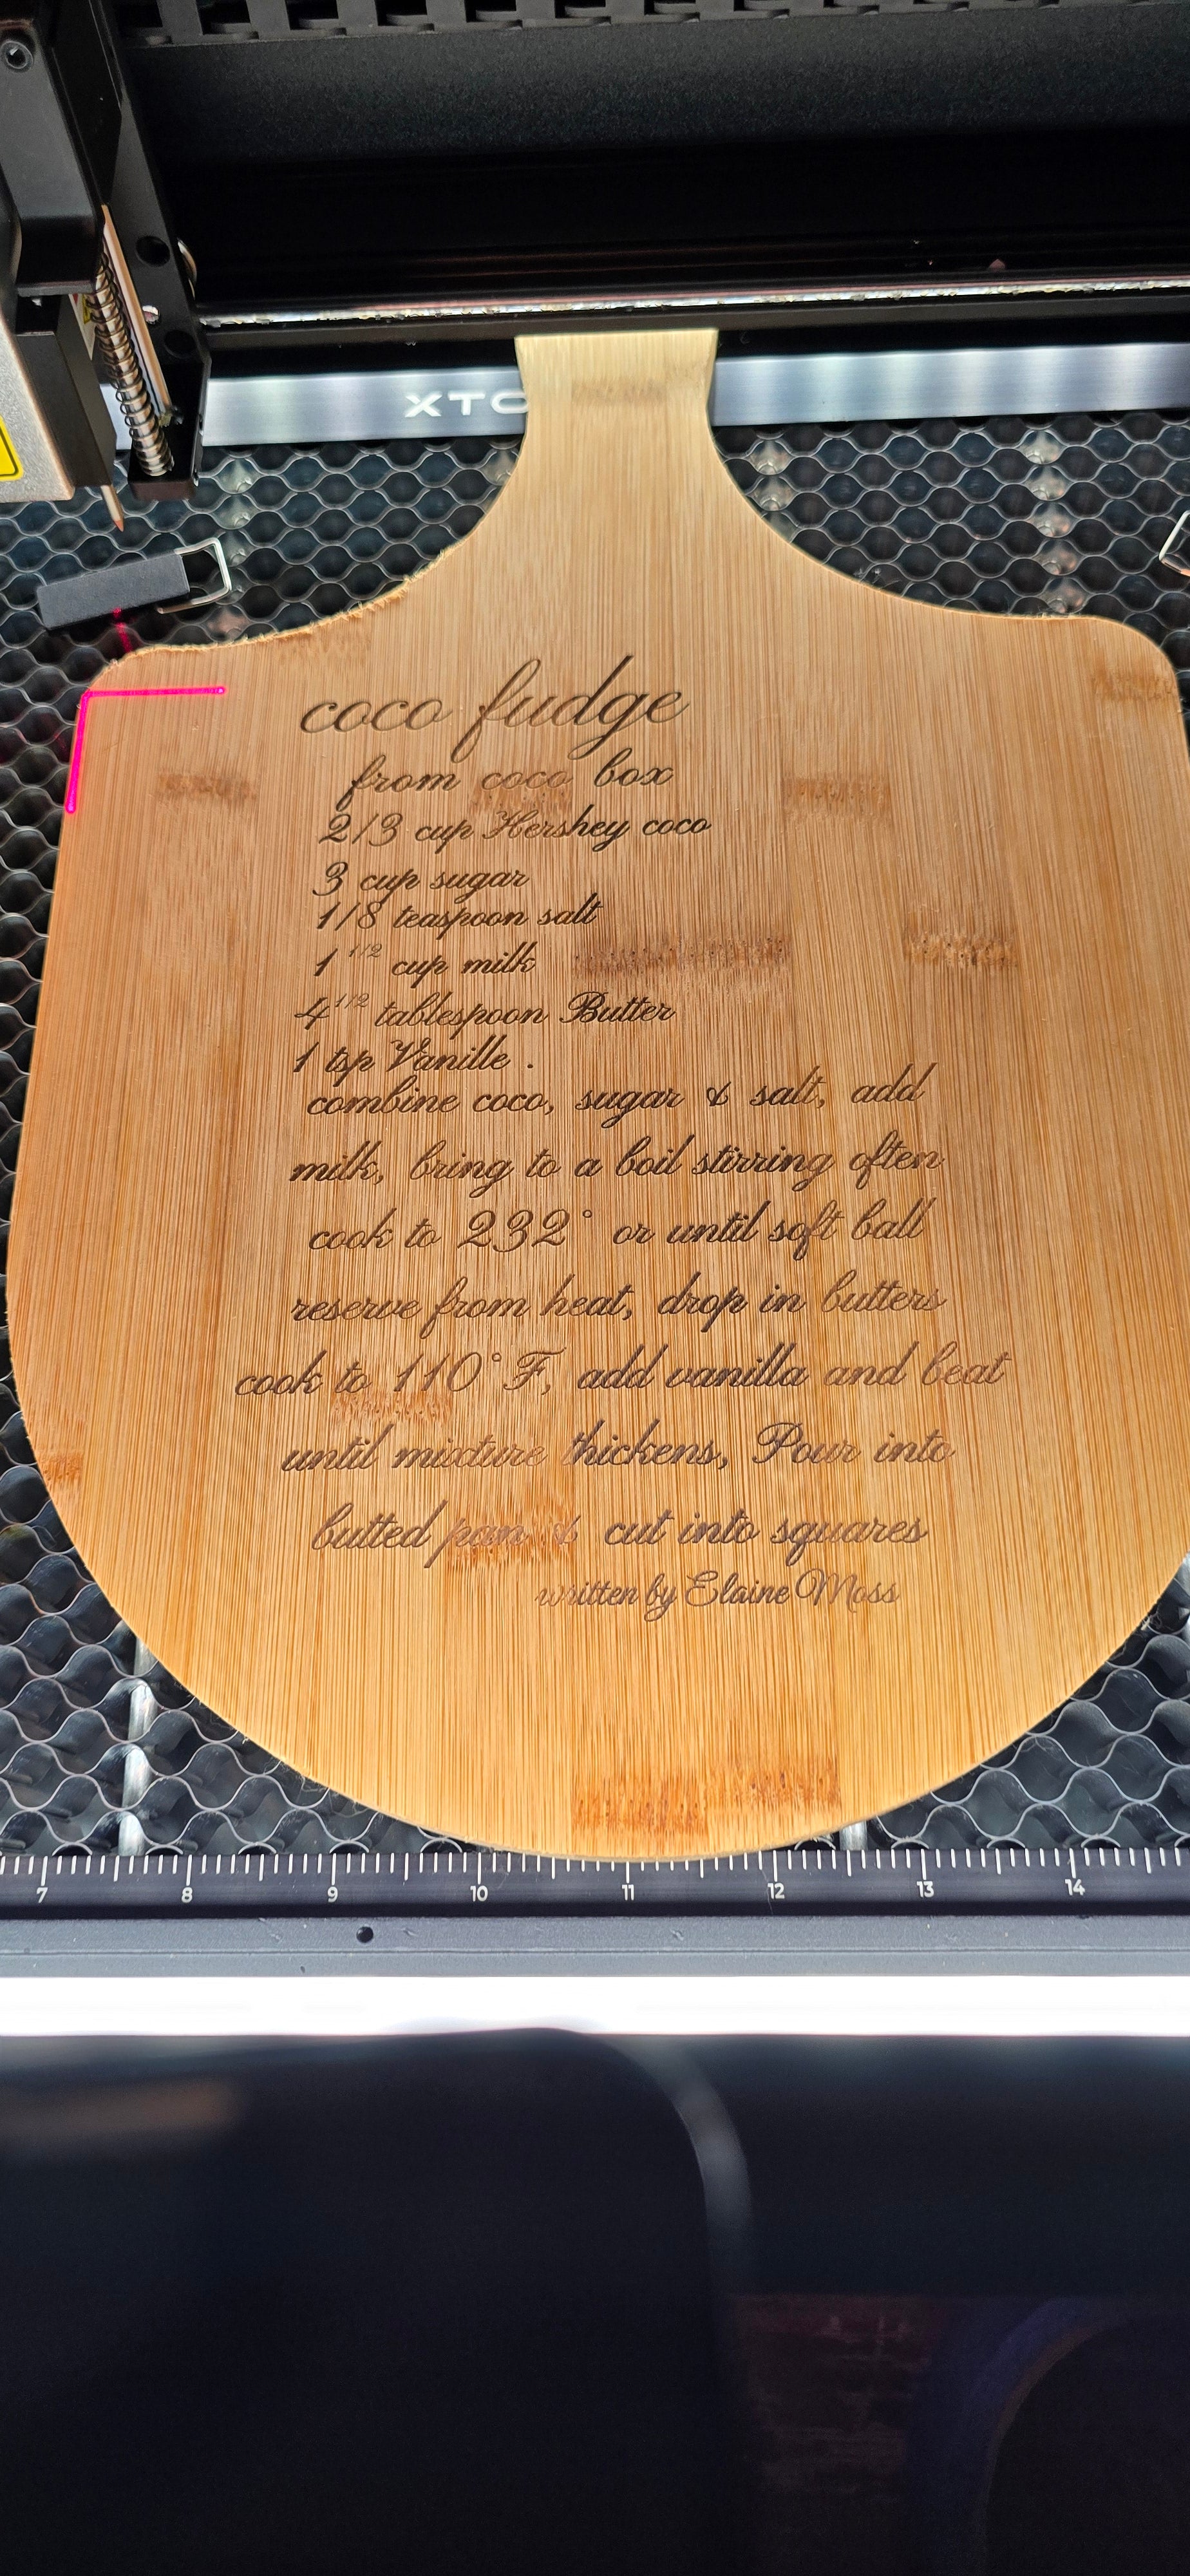 XTO
coco fudge
from coco box
2/3 cup Hershey coco
3 cup sugar
1/8 teaspoon salt
1 1/2 cup milk
4 1/2 tablespoon Butter
1 tsp Vanille .
combine coco, sugar & salt, add
milk, bring to a boil stirring often
cook to 232° or until soft ball
reserve from heat, drop in butters
cook to 110° F, add vanilla and beat
until mixture thickens, Pour into
butted pan & cut into squares
written by Elaine Moss
7 8 9 10 11 12 13 14